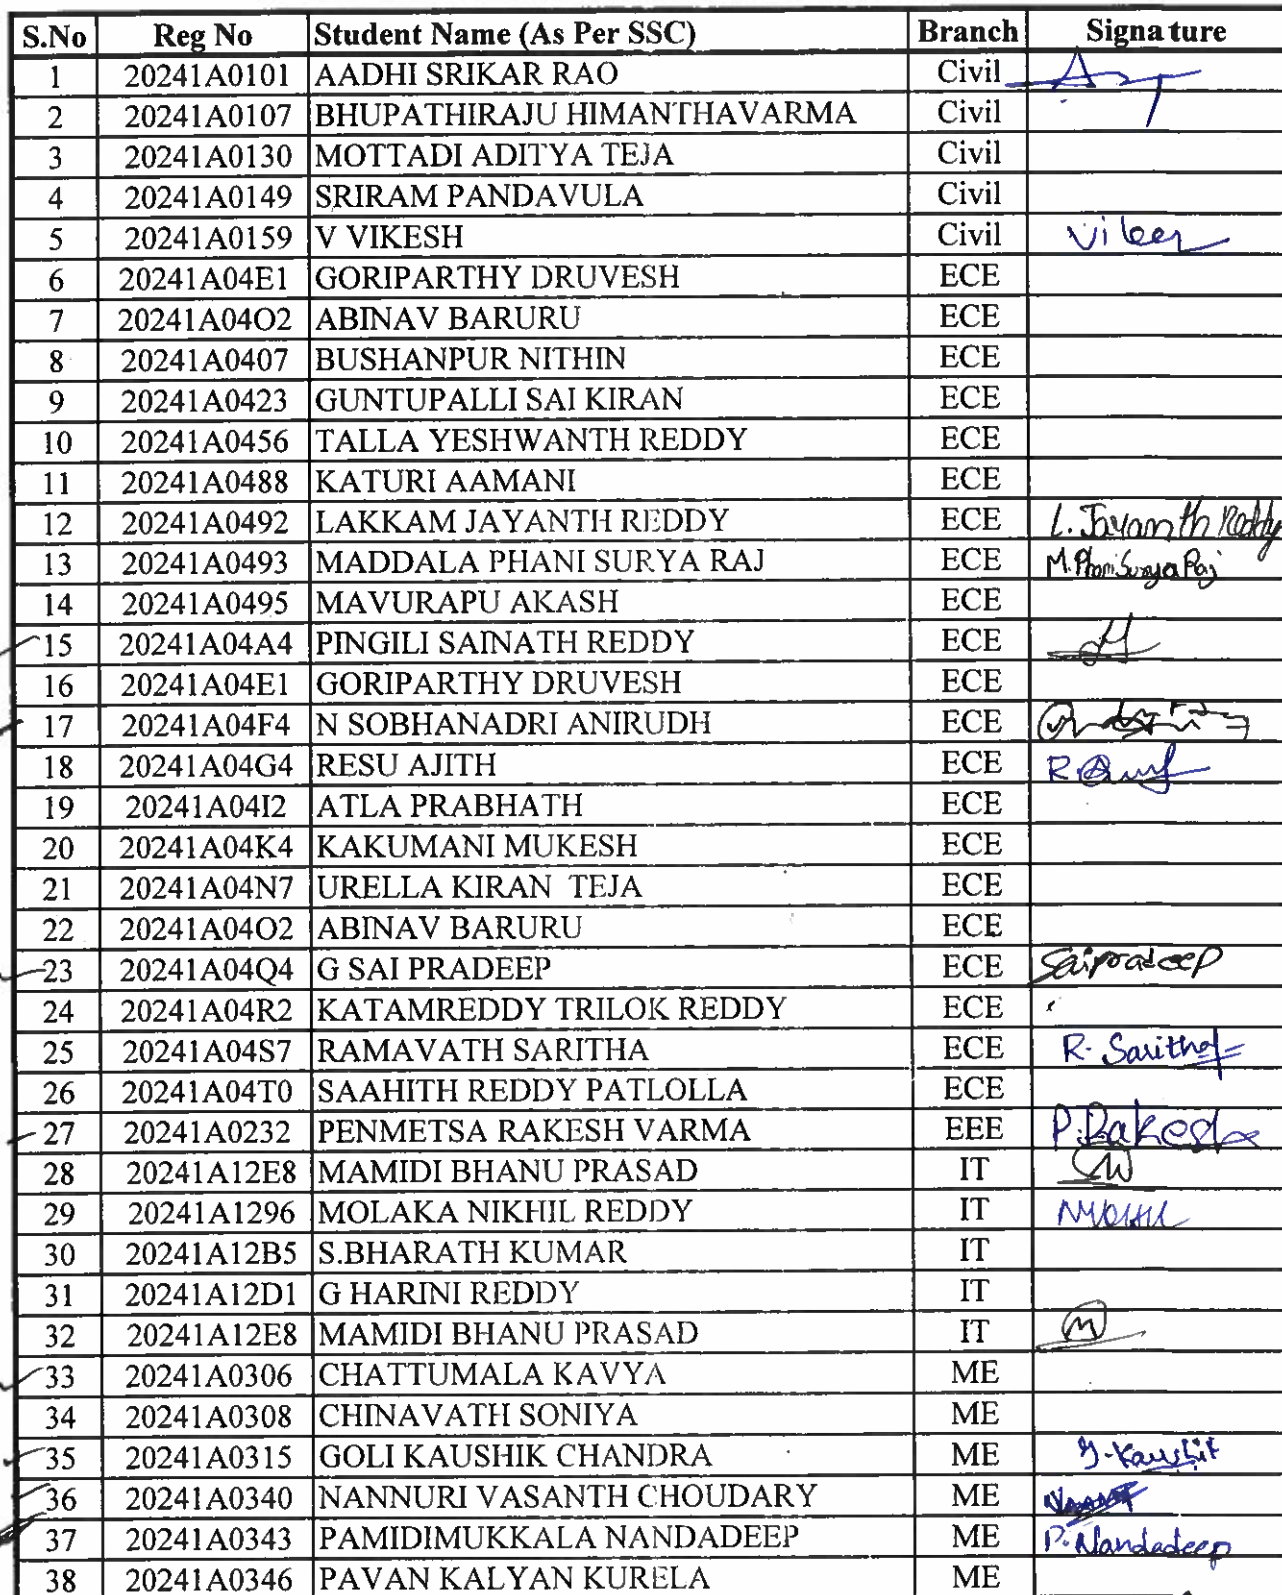 S.No Reg No Student Name (As Per SSC) Branch Signature
1 20241A0101 AADHI SRIKAR RAO Civil
2 20241A0107 BHUPATHIRAJU HIMANTHAVARMA Civil
3 20241A0130 MOTTADI ADITYA TEJA Civil
4 20241A0149 SRIRAM PANDAVULA Civil
5 20241A0159 V VIKESH Civil
6 20241A04E1 GORIPARTHY DRUVESH ECE
7 20241A04O2 ABINAV BARURU ECE
8 20241A0407 BUSHANPUR NITHIN ECE
9 20241A0423 GUNTUPALLI SAI KIRAN ECE
10 20241A0456 TALLA YESHWANTH REDDY ECE
11 20241A0488 KATURI AAMANI ECE
12 20241A0492 LAKKAM JAYANTH REDDY ECE L. Jayanth Reddy
13 20241A0493 MADDALA PHANI SURYA RAJ ECE M. Phani Surya Raj
14 20241A0495 MAVURAPU AKASH ECE
15 20241A04A4 PINGILI SAINATH REDDY ECE
16 20241A04E1 GORIPARTHY DRUVESH ECE
17 20241A04F4 N SOBHANADRI ANIRUDH ECE
18 20241A04G4 RESU AJITH ECE
19 20241A04I2 ATLA PRABHATH ECE
20 20241A04K4 KAKUMANI MUKESH ECE
21 20241A04N7 URELLA KIRAN TEJA ECE
22 20241A04O2 ABINAV BARURU ECE
23 20241A04Q4 G SAI PRADEEP ECE Saipradeep
24 20241A04R2 KATAMREDDY TRILOK REDDY ECE
25 20241A04S7 RAMAVATH SARITHA ECE R. Saritha
26 20241A04T0 SAAHITH REDDY PATLOLLA ECE
27 20241A0232 PENMETSA RAKESH VARMA EEE P. Rakesh
28 20241A12E8 MAMIDI BHANU PRASAD IT
29 20241A1296 MOLAKA NIKHIL REDDY IT
30 20241A12B5 S.BHARATH KUMAR IT
31 20241A12D1 G HARINI REDDY IT
32 20241A12E8 MAMIDI BHANU PRASAD IT
33 20241A0306 CHATTUMALA KAVYA ME
34 20241A0308 CHINAVATH SONIYA ME
35 20241A0315 GOLI KAUSHIK CHANDRA ME G. Kaushik
36 20241A0340 NANNURI VASANTH CHOUDARY ME
37 20241A0343 PAMIDIMUKKALA NANDADEEP ME P. Nandadeep
38 20241A0346 PAVAN KALYAN KURELA ME